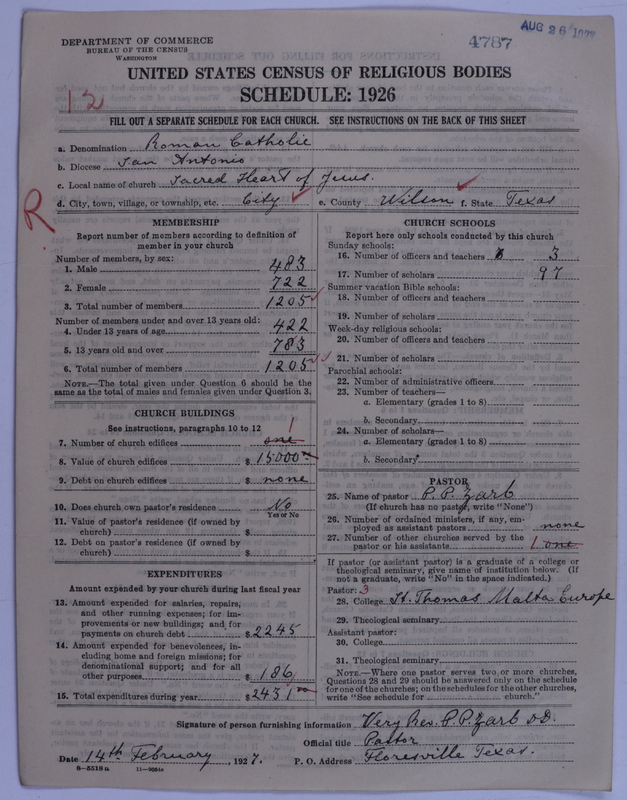 DEPARTMENT OF COMMERCE
BUREAU OF THE CENSUS
WASHINGTON
4787
AUG 26 1927
UNITED STATES CENSUS OF RELIGIOUS BODIES
SCHEDULE: 1926
12
FILL OUT A SEPARATE SCHEDULE FOR EACH CHURCH. SEE INSTRUCTIONS ON THE BACK OF THIS SHEET
a. Denomination Roman Catholic
b. Diocese San Antonio
c. Local name of church Sacred Heart of Jesus.
d. City, town, village, or township, etc. City e. County Wilson f. State Texas
R
MEMBERSHIP
Report number of members according to definition of
member in your church
Number of members, by sex:
1. Male 483
2. Female 722
3. Total number of members 1205
Number of members under and over 13 years old:
4. Under 13 years of age 422
5. 13 years old and over 783
6. Total number of members 1205
NOTE.—The total given under Question 6 should be
the same as the total of males and females given under Question 3.
CHURCH BUILDINGS
See instructions, paragraphs 10 to 12
7. Number of church edifices one 1
8. Value of church edifices $ 15000
9. Debt on church edifices $ none
10. Does church own pastor's residence No
Yes or No
11. Value of pastor's residence (if owned by
church) $
12. Debt on pastor's residence (if owned by
church) $
EXPENDITURES
Amount expended by your church during last fiscal year
13. Amount expended for salaries, repairs,
and other running expenses; for im-
provements or new buildings; and for
payments on church debt $ 2245
14. Amount expended for benevolences, in-
cluding home and foreign missions; for
denominational support; and for all
other purposes $ 186
15. Total expenditures during year $ 2431
CHURCH SCHOOLS
Report here only schools conducted by this church
Sunday schools:
16. Number of officers and teachers 3
17. Number of scholars 97
Summer vacation Bible schools:
18. Number of officers and teachers
19. Number of scholars
Week-day religious schools:
20. Number of officers and teachers
21. Number of scholars
Parochial schools:
22. Number of administrative officers
23. Number of teachers—
a. Elementary (grades 1 to 8)
b. Secondary
24. Number of scholars—
a. Elementary (grades 1 to 8)
b. Secondary
PASTOR
25. Name of pastor P. P. Zarb
(If church has no pastor, write "None")
26. Number of ordained ministers, if any, em-
ployed as assistant pastors none
27. Number of other churches served by the
pastor or his assistants 1 one
If pastor (or assistant pastor) is a graduate of a college or
theological seminary, give name of institution below. (If
not a graduate, write "No" in the space indicated.)
Pastor: 3
28. College St. Thomas Malta Europe
29. Theological seminary
Assistant pastor:
30. College
31. Theological seminary
NOTE.—Where one pastor serves two or more churches,
Questions 28 and 29 should be answered only on the schedule
for one of the churches; on the schedules for the other churches,
write "See schedule for church."
Signature of person furnishing information Very Rev. P. P. Zarb D.D.
Official title Pastor
Date 14th February, 1927. P. O. Address Floresville Texas.
8—5518a